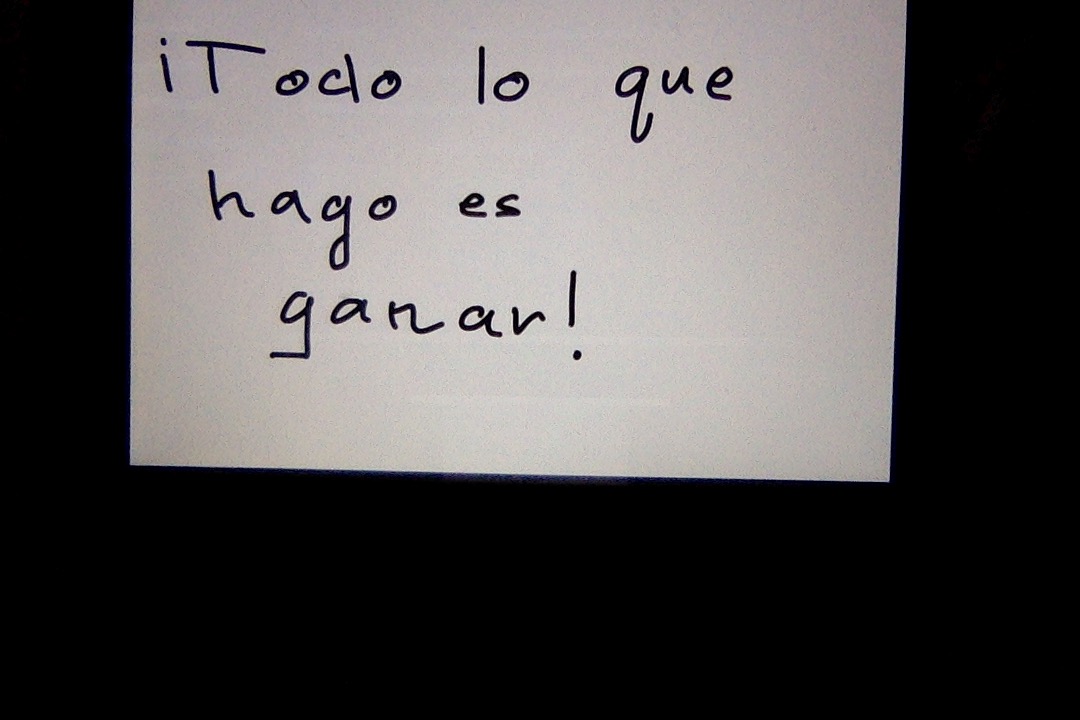 ¡Todo lo que
hago es
ganar!